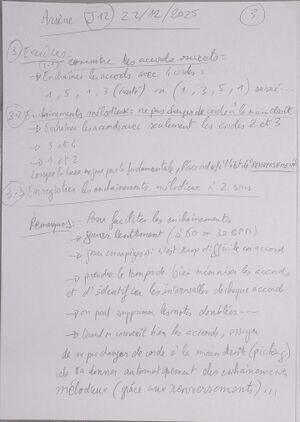 Arsène J12 22/12/2025 3
3) Exercices:
3-1 connaitre les accords suivants:
→ Enchaîner les accords avec 4 cordes:
1, 5, 1, 3 (écarté) ou (1, 3, 5, 1) serré...
3-2 Enchainements mélodieux: ne pas changer de corde à la main droite
→ Enchaîner les accords avec seulement les cordes 2 et 3
→ 3 et 4
→ 1 et 2
Lorsque la basse ne joue pas la fondamentale, l'accord est à l'état de RENVERSEMENT
3-3 Enregistrer les enchainements mélodieux à 2 sons
Remarques: - Pour faciliter les enchainements
→ jouer lentement (à 60 = 30 BPM)
→ jouer en arpèges si c'est trop difficile en accord
→ prendre le temps de bien mémoriser les accords
et d'identifier les intervalles de chaque accord
→ on peut supprimer les notes doublées ---
→ Quand on connait bien les accords, essayer
de ne pas changer de corde à la main droite (picking)
de donner automatiquement des enchainements
mélodieux (grâce aux renversements)...